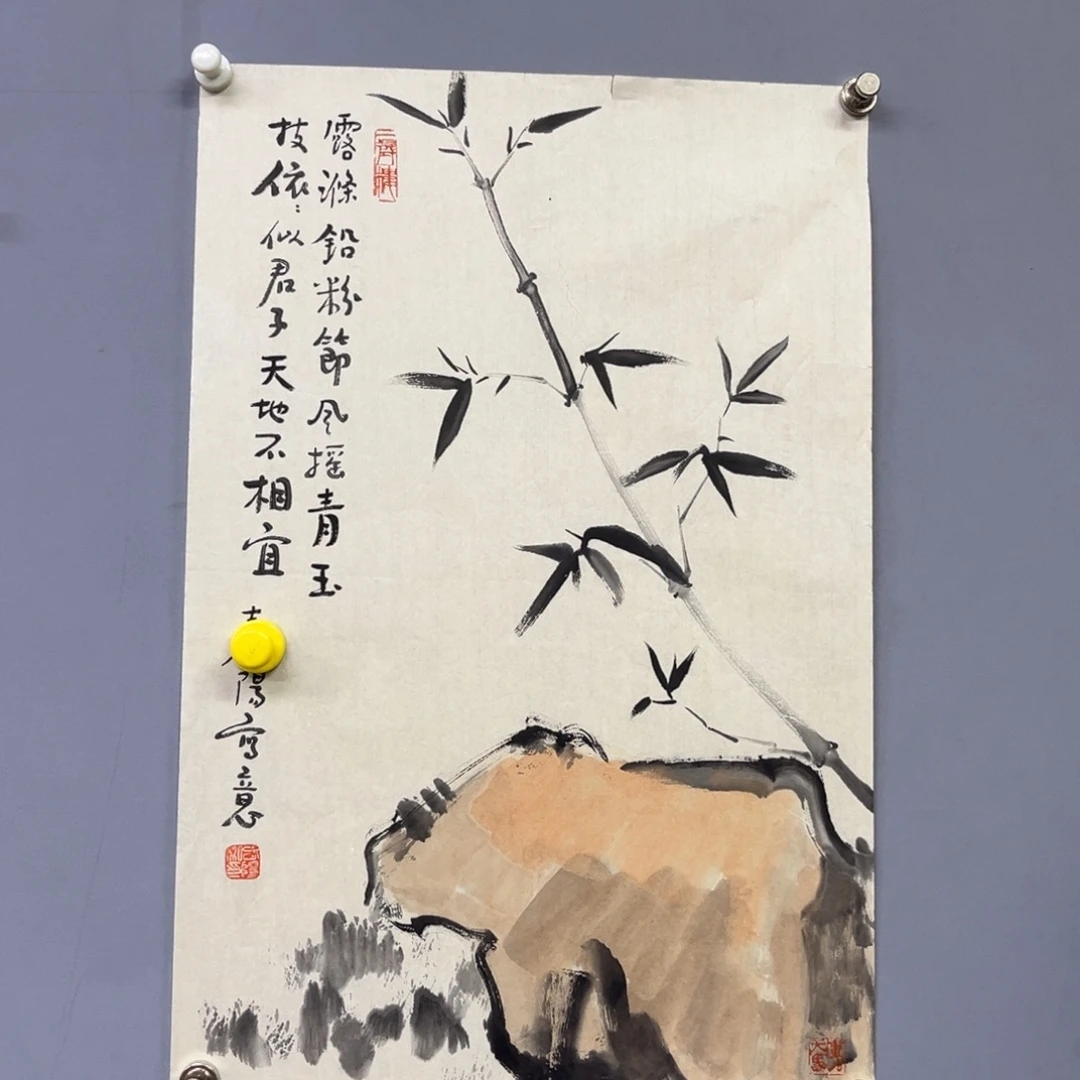 露滌鉛粉節风摇青玉
枝依：似君子天地不相宜
陽写意